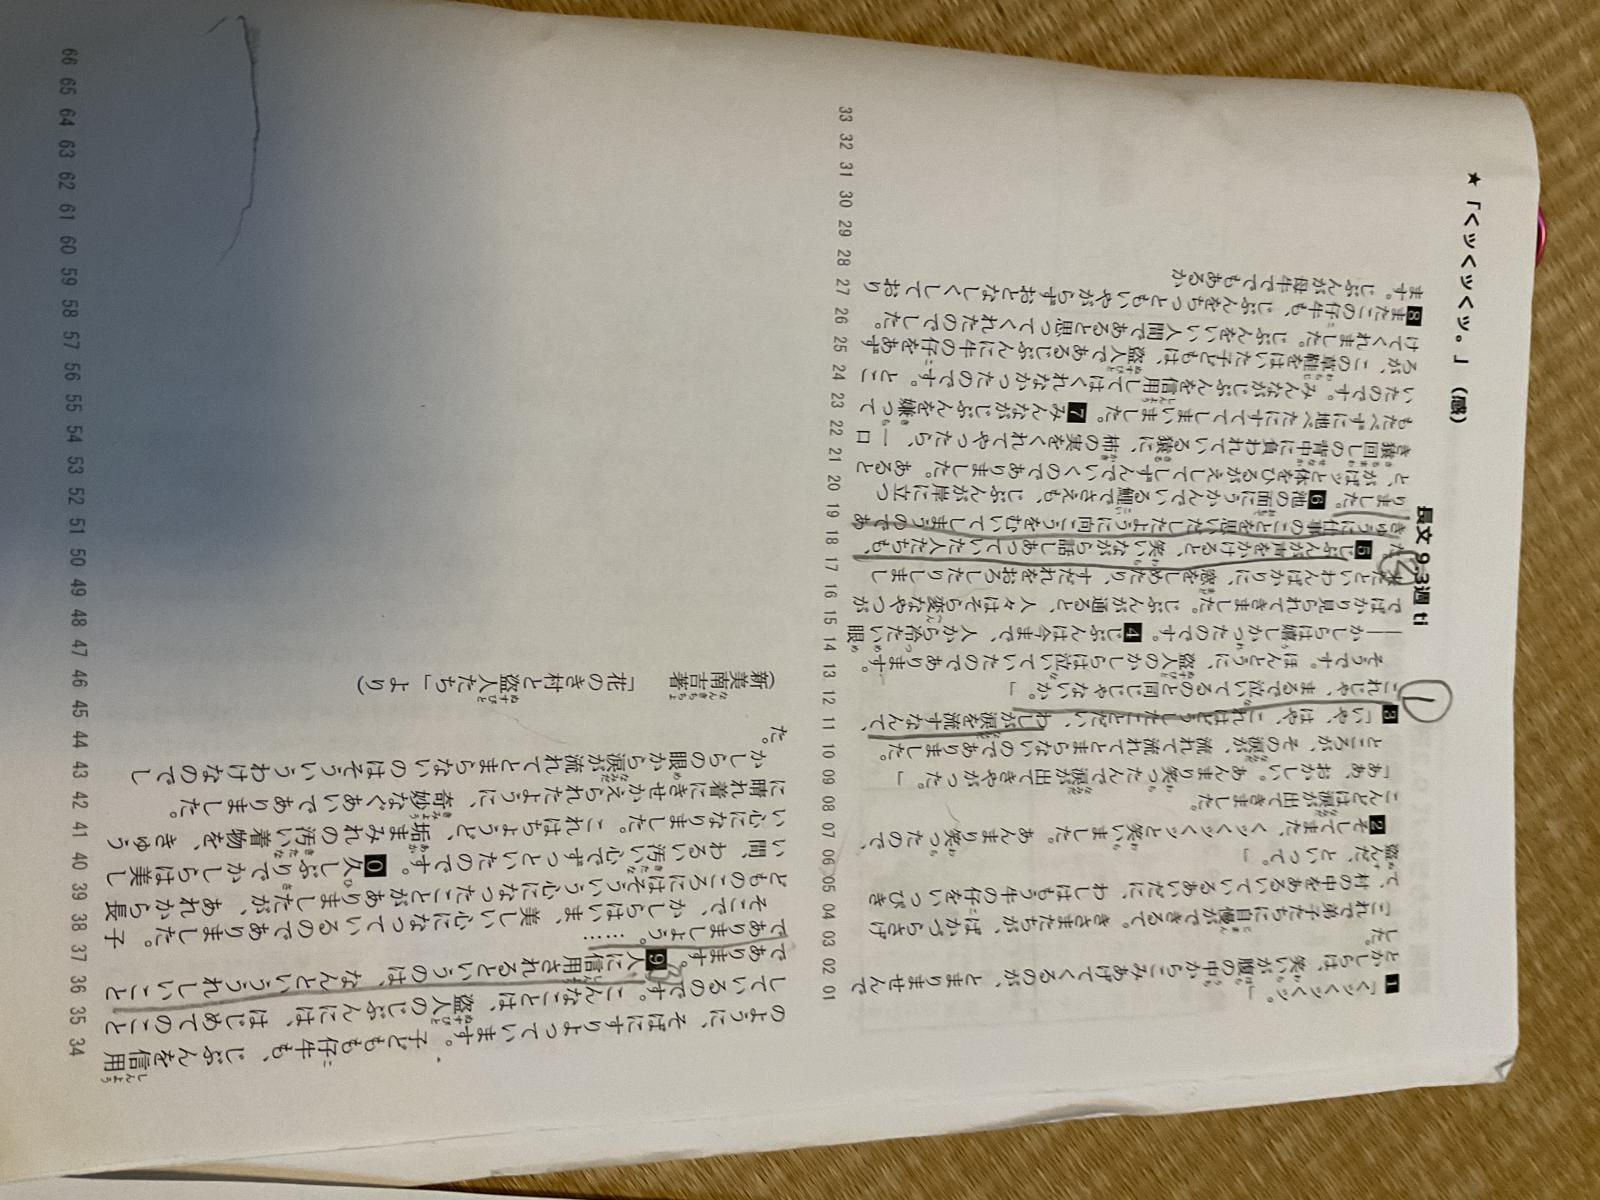 ★「くックックッ。」（感）
長文 9.3週 ti
1「くックックッ。」
とかしらは、笑いが腹の中からこみあげてくるのが、とまりませんで
した。
「これで弟子たちに自慢ができるて。きさまたちが、ばかづらさげ
て、村の中をあるいているあいだに、わしはもう牛の仔をいっぴき
盗んだ、といって。」
2そしてまた、くックックッと笑いました。あんまり笑ったので、
こんどは涙が出てきました。
「ああ、おかしい。あんまり笑ったんで涙が出てきやがった。」
ところが、その涙が、流れて流れてとまらないのでありました。
3「いや、はや、これはどうしたことだい、わしが涙を流すなんて、
これじゃ、まるで泣いてるのと同じじゃないか。」
そうです。ほんとうに、盗人のかしらは泣いていたのであります。
――かしらは嬉しかったのです。4じぶんは今まで、人から冷たい眼
でばかり見られてきました。じぶんが通ると、人々はそら変なやつが
来たといわんばかりに、窓をしめたり、すだれをおろしたりしまし
た。5じぶんが声をかけると、笑いながら話しあっていた人たちも、
きゅうに仕事のことを思いだしたように向こうをむいてしまうのであ
りました。6池の面にうかんでいる鯉でさえも、じぶんが岸に立つ
と、がばッと体をひるがえしてしずんでいくのでありました。あると
き猿回しの背中に負われている猿に、柿の実をくれてやったら、一口
もたべずに地べたにすててしまいました。7みんながじぶんを嫌って
いたのです。みんながじぶんを信用してはくれなかったのです。とこ
ろが、この草鞋をはいた子どもは、盗人であるじぶんに牛の仔をあず
けてくれました。じぶんをいい人間であると思ってくれたのでした。
8またこの仔牛も、じぶんをちっともいやがらずおとなしくしており
ます。じぶんが母牛ででもあるか
のように、そばにすりよっています。子どもも仔牛も、じぶんを信用
しているのです。こんなことは、盗人のじぶんには、はじめてのこと
であります。9人に信用されるというのは、なんといううれしいこと
でありましょう。……
そこで、かしらはいま、美しい心になっているのでありました。子
どものころにはそういう心になったことがありましたが、あれから長
い間、わるい汚い心でずっといたのです。0久しぶりでかしらは美し
い心になりました。これはちょうど、垢まみれの汚い着物を、きゅう
に晴れ着にきせかえられたように、奇妙なぐあいでありました。
かしらの眼から涙が流れてとまらないのはそういうわけなのでし
た。
（新美南吉著 「花のき村と盗人たち」より）
01 02 03 04 05 06 07 08 09 10 11 12 13 14 15 16 17 18 19 20 21 22 23 24 25 26 27 28 29 30 31 32 33
34 35 36 37 38 39 40 41 42 43 44 45 46 47 48 49 50 51 52 53 54 55 56 57 58 59 60 61 62 63 64 65 66
1
2
3